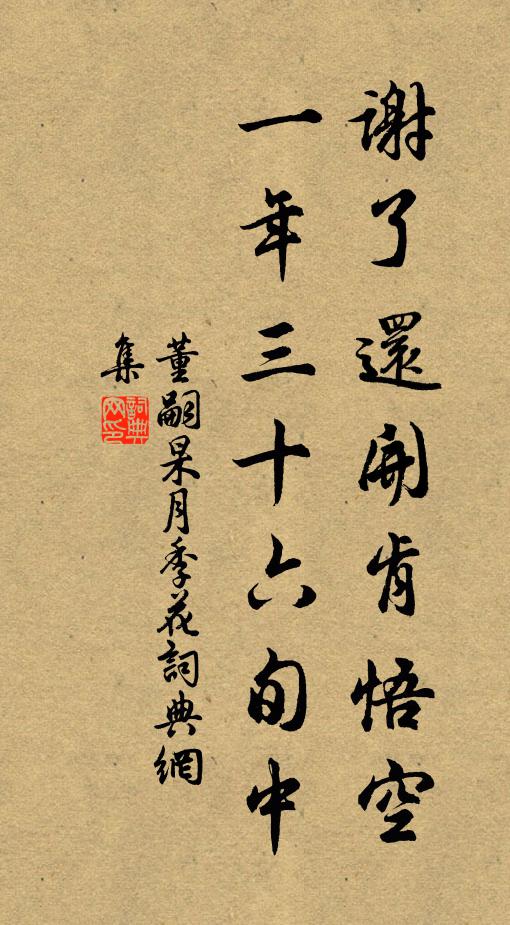 謝了還開肯悟空
一年三十六旬中
董嗣杲月季花詞典網
集
詞典網印